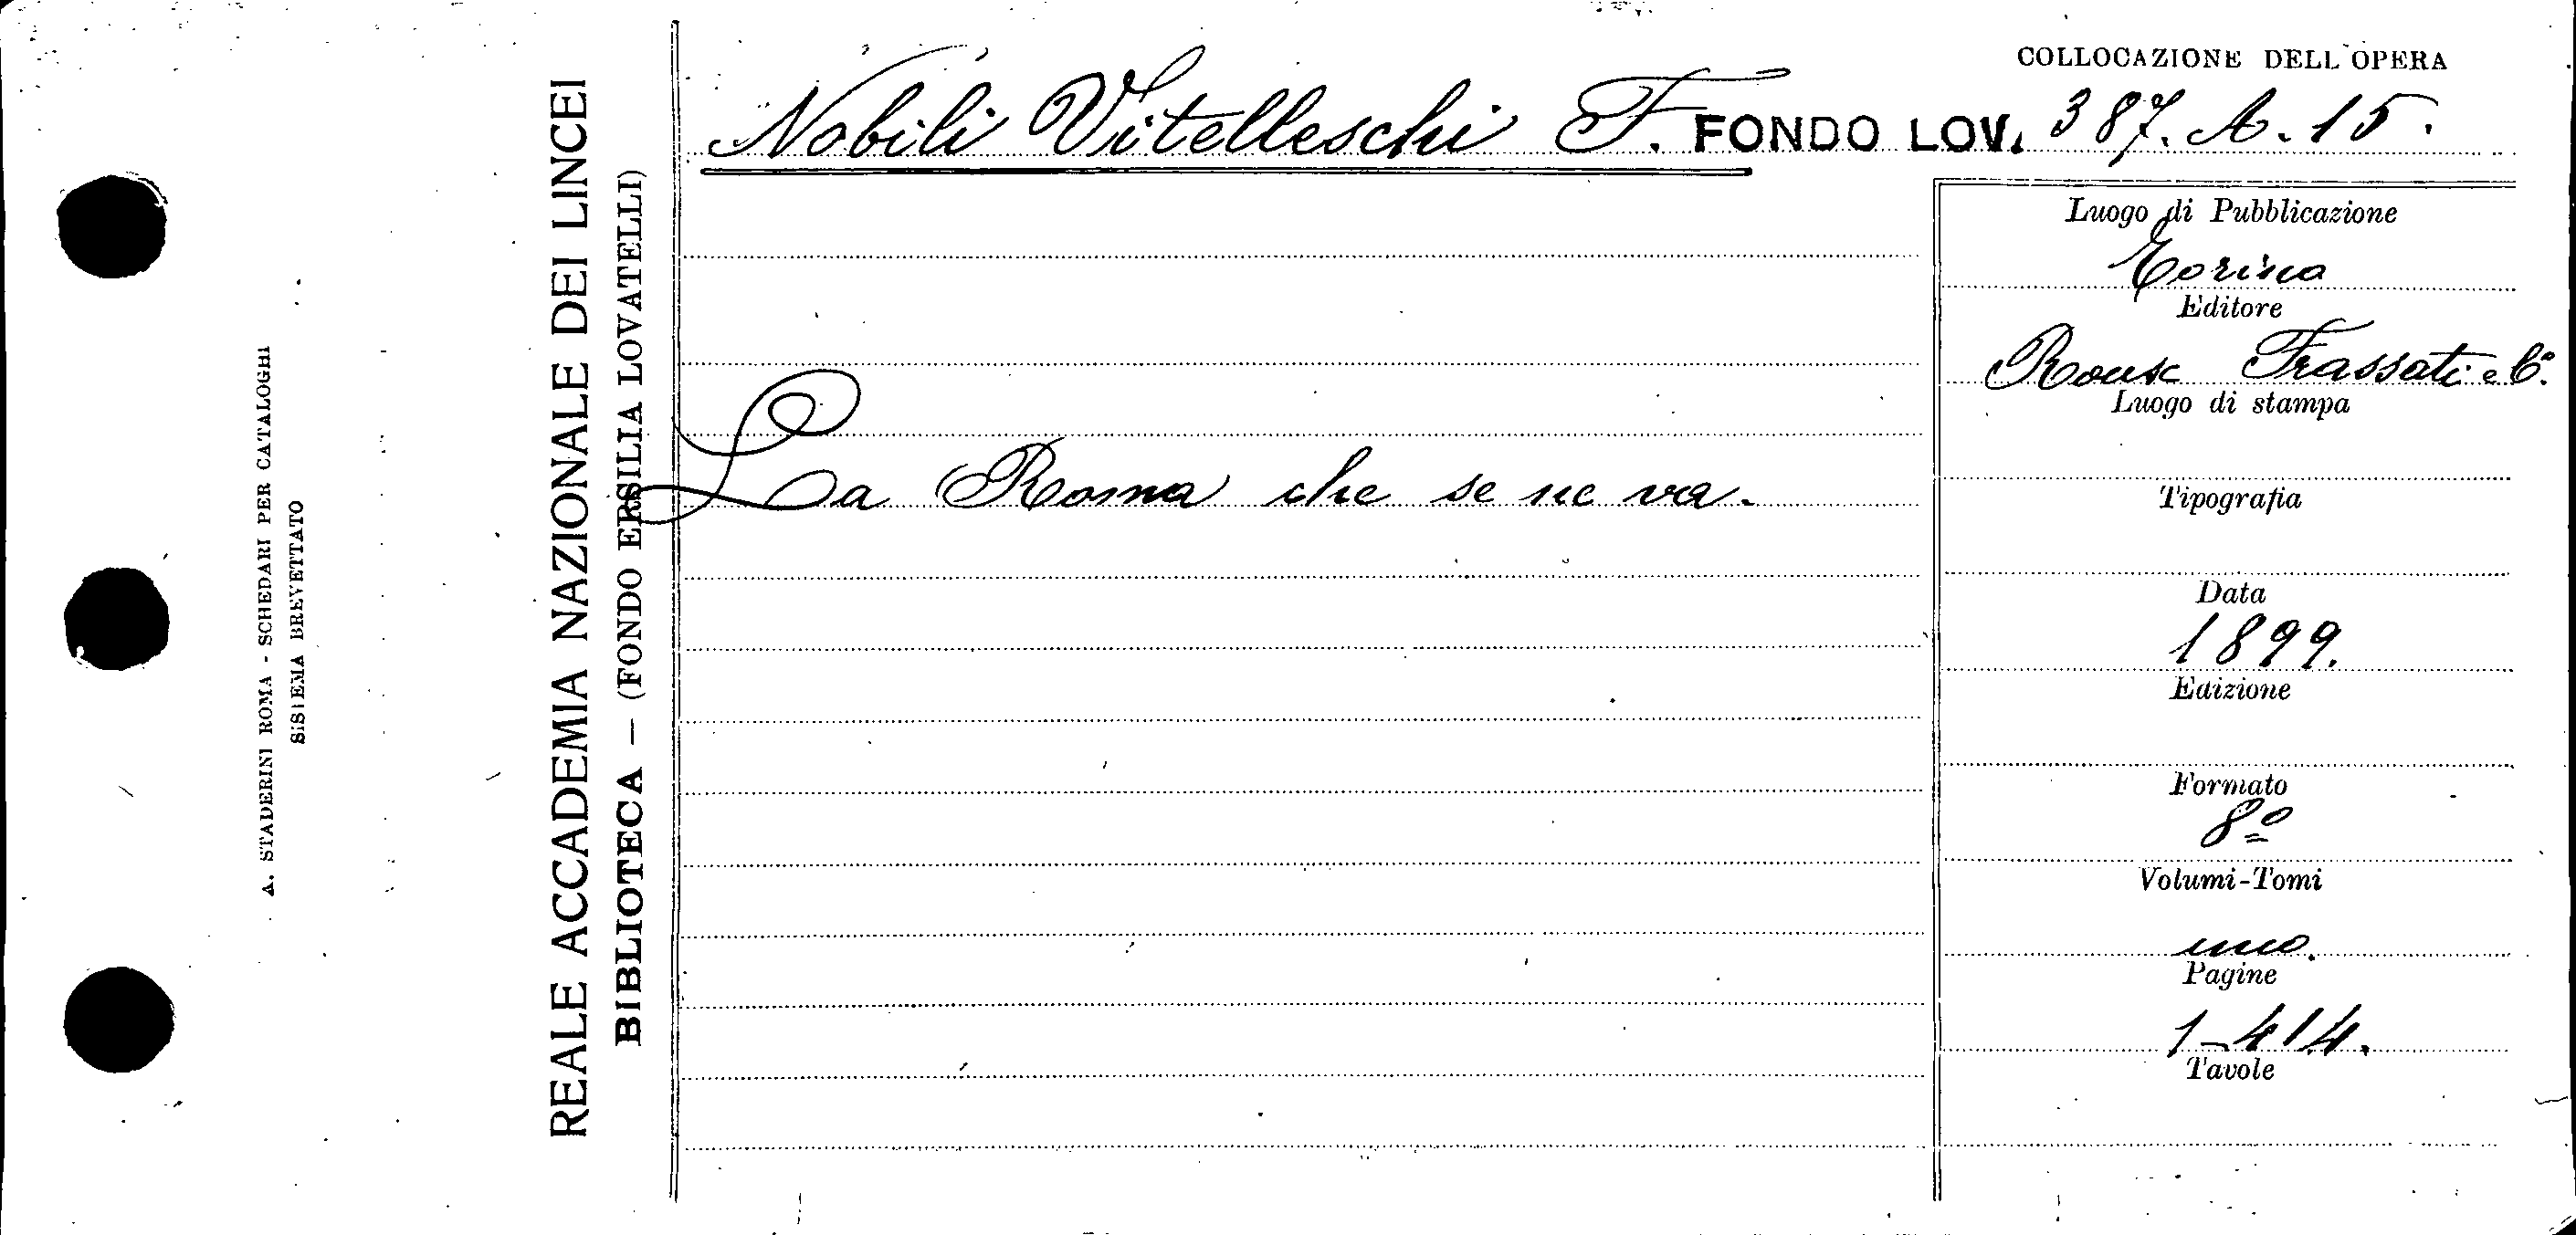 A. STADERINI ROMA - SCHEDARI PER CATALOGHI
SISTEMA BREVETTATO
REALE ACCADEMIA NAZIONALE DEI LINCEI
BIBLIOTECA — (FONDO ERSILIA LOVATELLI)
COLLOCAZIONE DELL'OPERA
Nobili Vitelleschi F. FONDO LOV. 387. A. 15.
La Roma che se ne va.
Luogo di Pubblicazione
Torino
Editore
Roux Frassati e C.º
Luogo di stampa
Tipografia
Data
1899.
Edizione
Formato
8º
Volumi-Tomi
uno.
Pagine
1-414.
Tavole